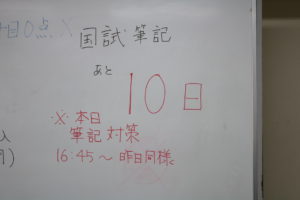 目0点
国試筆記
あと
10日
※本日
筆記対策
16:45～昨日同様